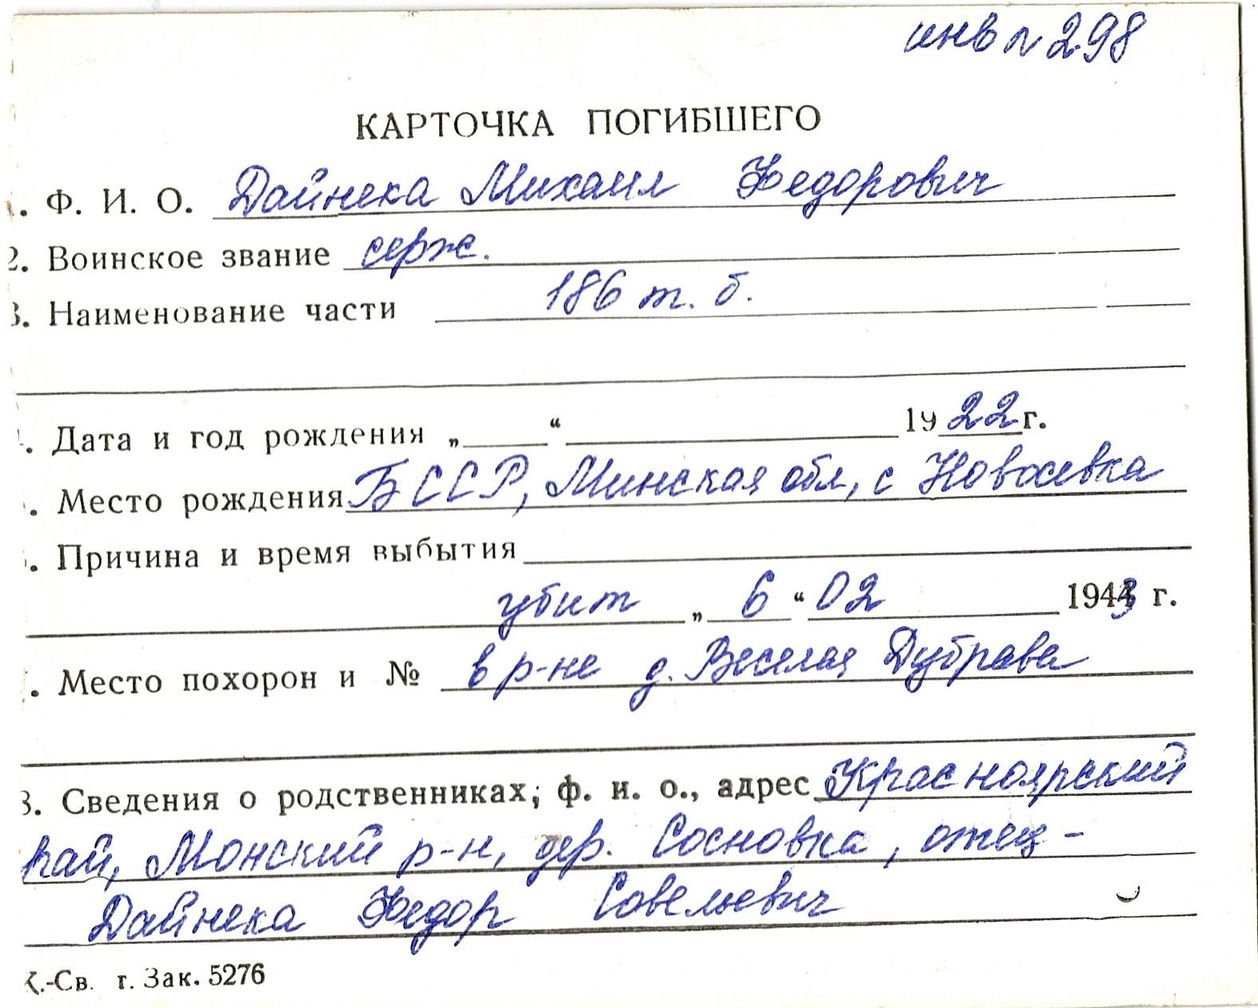 инв № 298
КАРТОЧКА ПОГИБШЕГО
. Ф. И. О. Дайнека Михаил Федорович
2. Воинское звание серж.
3. Наименование части 186 т. б.
. Дата и год рождения „ “ 1922 г.
. Место рождения БССР, Минская обл, с Новосевка
. Причина и время выбытия
убит „ 6 “ 02 1943 г.
. Место похорон и № в р-не д. Веселая Дубрава
8. Сведения о родственниках; ф. и. о., адрес Красноярский
край, Монский р-н, дер. Сосновка, отец -
Дайнека Федор Савельевич
К.-Св. г. Зак. 5276